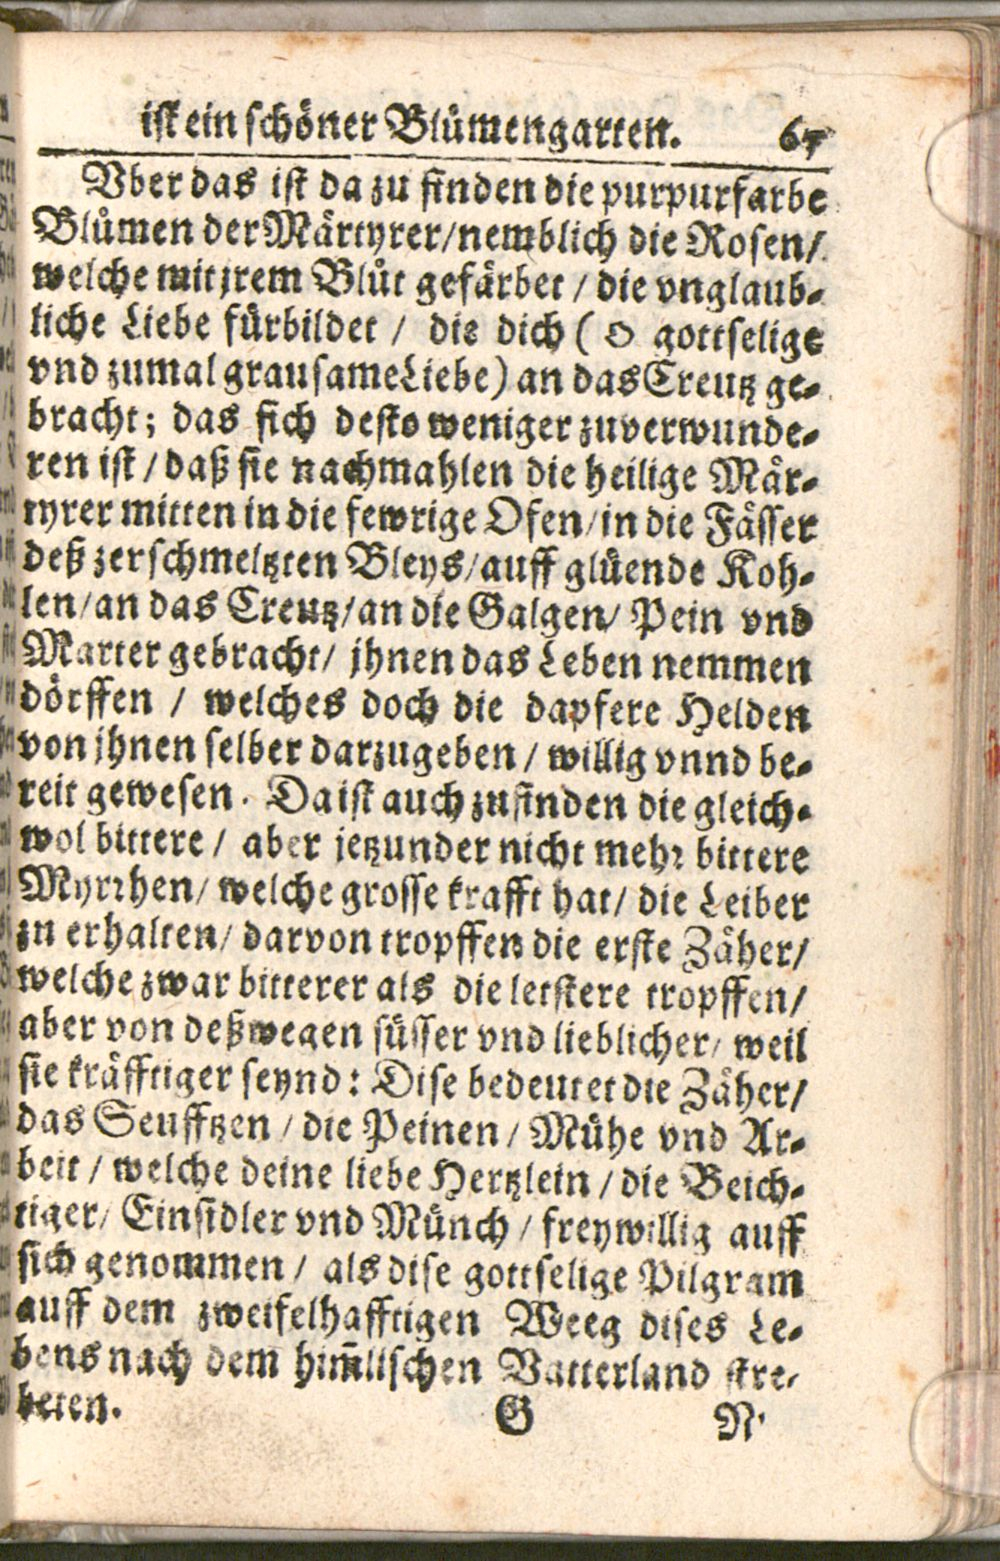 ist ein schöner Blůmengarten. 67
Vber das ist da zu finden die purpurfarbe
Blůmen der Märtyrer/nemblich die Rosen/
welche mit jrem Blůt gefärbet / die vnglaub-
liche Liebe fürbildet / die dich ( O gottselige
vnd zumal grausame Liebe) an das Creutz ge-
bracht; das sich desto weniger zuverwunde-
ren ist / daß sie nachmahlen die heilige Mär-
tyrer mitten in die fewrige Ofen/in die Fässer
deß zerschmeltzten Bleys/auff glüende Koh-
len/an das Creutz/an die Galgen/ Pein vnd
Marter gebracht/ jhnen das Leben nemmen
dörffen / welches doch die dapfere Helden
von jhnen selber darzugeben / willig vnnd be-
reit gewesen. Da ist auch zufinden die gleich-
wol bittere / aber jetzunder nicht mehr bittere
Myrrhen/ welche grosse krafft hat/ die Leiber
zu erhalten/ darvon tropffen die erste Zäher/
welche zwar bitterer als die letstere tropffen/
aber von deßwegen süsser vnd lieblicher/ weil
sie kräfftiger seynd: Dise bedeutet die Zäher/
das Seufftzen / die Peinen / Mühe vnd Ar-
beit / welche deine liebe Hertzlein / die Beich-
tiger/ Einsidler vnd Münch / freywillig auff
sich genommen / als dise gottselige Pilgram
auff dem zweifelhafftigen Weeg dises Le-
bens nach dem him̃lischen Vatterland stre-
beten. G N.